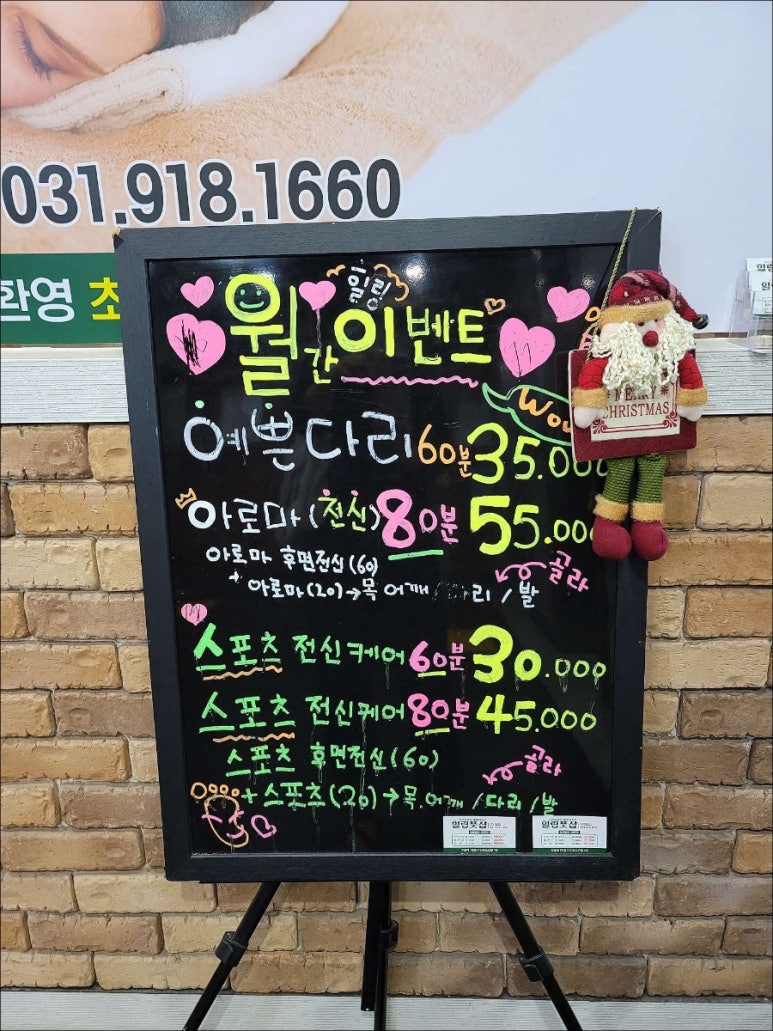 031.918.1660
환영 초
힐링
월간이벤트
Wow
MERRY CHRISTMAS
예쁜다리 60분 35.000
아로마(전신) 80분 55.000
아로마 후면전신(60)
+ 아로마(20)→목 어깨 / 다리 / 발
골라
스포츠 전신케어 60분 30.000
스포츠 전신케어 80분 45.000
스포츠 후면전신(60)
골라
+스포츠(20)→목.어깨 /다리 /발
힐링풋샵 힐링풋샵